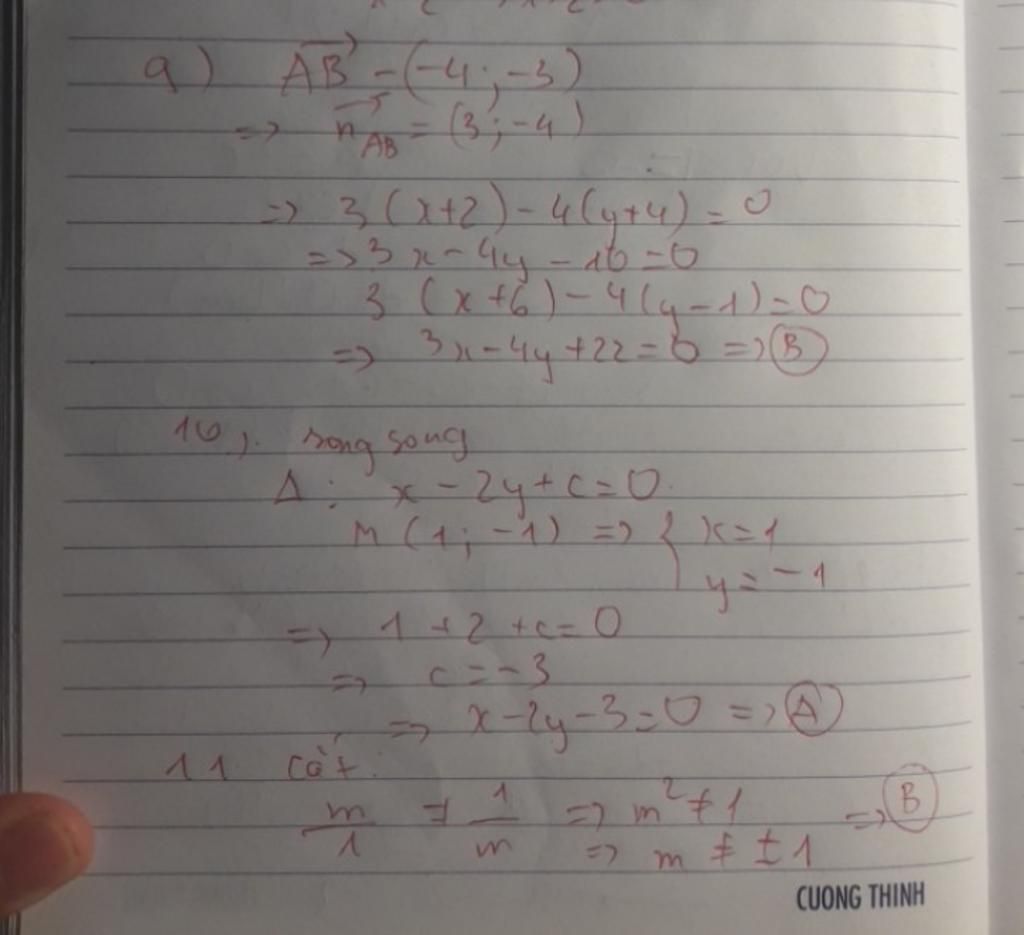 9) AB→ = (-4; -3)
=> n→AB = (3; -4)
=> 3(x+2) - 4(y+4) = 0
=> 3x - 4y - 10 = 0
3(x+6) - 4(y-1) = 0
=> 3x - 4y + 22 = 0 => B
10, song song
Δ: x - 2y + c = 0
M(1; -1) => { x = 1
y = -1
=> 1 + 2 + c = 0
=> c = -3
=> x - 2y - 3 = 0 => A
11 cắt
m/1 ≠ 1/m => m² ≠ 1 => B
=> m ≠ ±1
CUONG THINH